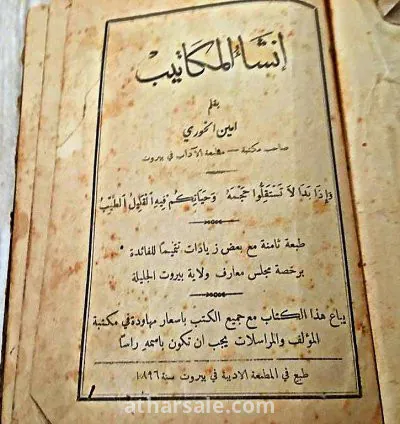 إنشاء المكاتيب
بقلم
امين الخوري
صاحب مكتبة — مطبعة الآداب في بيروت
وَإذَا بَدَا لاَ تَسْتَقِلُّوا حَجْمَهُ وَحَيَاتِكُمْ فِيهِ الْقَلِيلُ الطَّيِّبُ
طبعة ثامنة مع بعض زيادات تتميمًا للفائدة
برخصة مجلس معارف ولاية بيروت الجليلة
يباع هذا الكتاب مع جميع الكتب باسعار مهاودة في مكتبة
المؤلف والمراسلات يجب ان تكون باسمهِ راسًا
طبع في المطبعة الادبية في بيروت سنة ١٨٩٦
atharsale.com